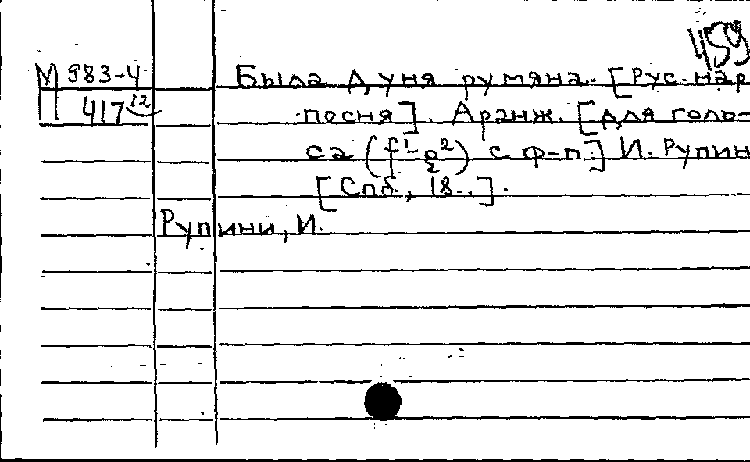 459
М 983-4
П 417 12
Была Дуня румяна. [Рус. нар.
песня]. Аранж. [для голо-
са (f¹-g²) с ф-п.] И. Рупин
[Спб., 18..].
Рупини, И.